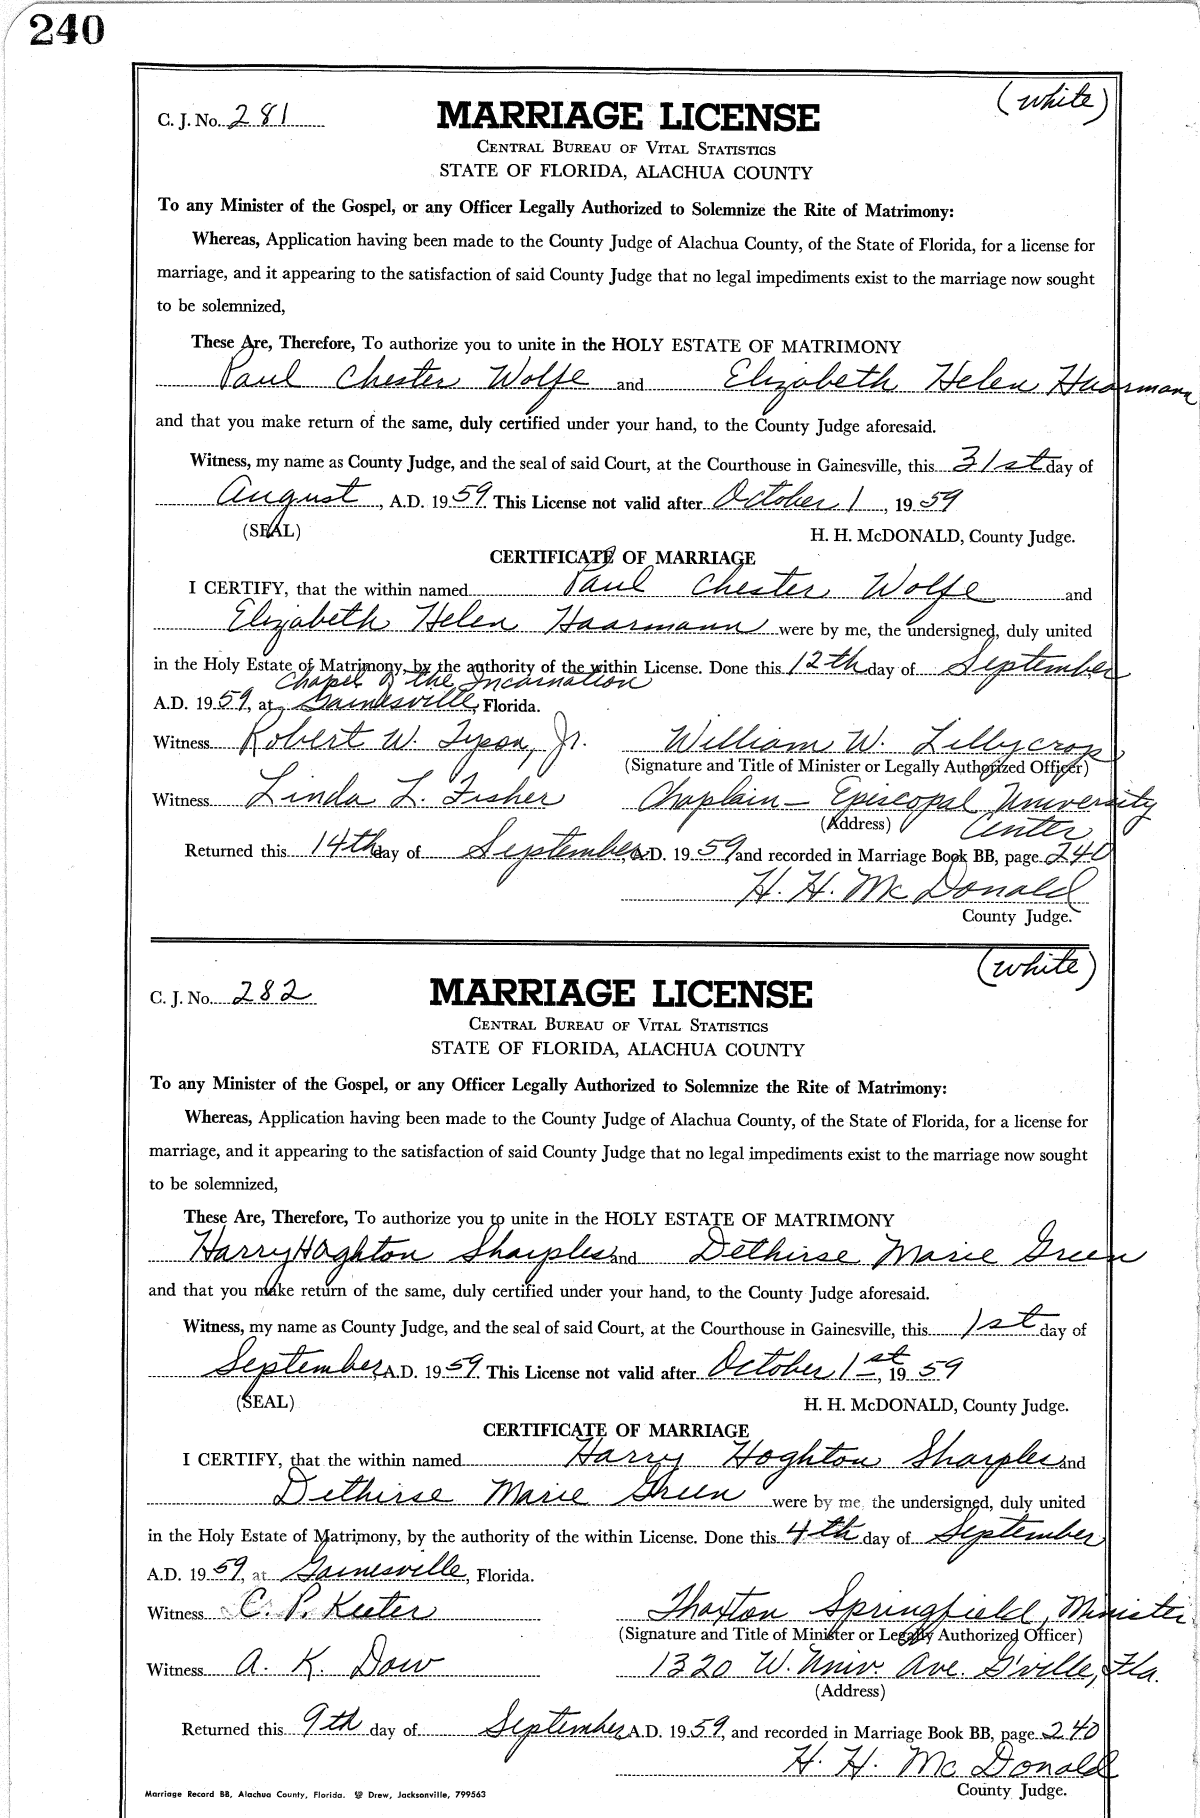 240
(white)
C. J. No. 281
MARRIAGE LICENSE
CENTRAL BUREAU OF VITAL STATISTICS
STATE OF FLORIDA, ALACHUA COUNTY
To any Minister of the Gospel, or any Officer Legally Authorized to Solemnize the Rite of Matrimony:
Whereas, Application having been made to the County Judge of Alachua County, of the State of Florida, for a license for
marriage, and it appearing to the satisfaction of said County Judge that no legal impediments exist to the marriage now sought
to be solemnized,
These Are, Therefore, To authorize you to unite in the HOLY ESTATE OF MATRIMONY
Paul Chester Wolfe and Elizabeth Helen Haarmann
and that you make return of the same, duly certified under your hand, to the County Judge aforesaid.
Witness, my name as County Judge, and the seal of said Court, at the Courthouse in Gainesville, this 31st day of
August, A.D. 1959. This License not valid after October 1, 1959
(SEAL) H. H. McDONALD, County Judge.
CERTIFICATE OF MARRIAGE
I CERTIFY, that the within named Paul Chester Wolfe and
Elizabeth Helen Haarmann were by me, the undersigned, duly united
in the Holy Estate of Matrimony, by the authority of the within License. Done this 12th day of September
Chapel of the Incarnation
A.D. 1959, at Gainesville, Florida.
Witness Robert W. Tyson, Jr. William W. Lillycrop
(Signature and Title of Minister or Legally Authorized Officer)
Witness Linda L. Fisher Chaplain - Episcopal University
(Address) Center
Returned this 14th day of September A.D. 1959 and recorded in Marriage Book BB, page 240
H. H. McDonald
County Judge.
(white)
C. J. No. 282
MARRIAGE LICENSE
CENTRAL BUREAU OF VITAL STATISTICS
STATE OF FLORIDA, ALACHUA COUNTY
To any Minister of the Gospel, or any Officer Legally Authorized to Solemnize the Rite of Matrimony:
Whereas, Application having been made to the County Judge of Alachua County, of the State of Florida, for a license for
marriage, and it appearing to the satisfaction of said County Judge that no legal impediments exist to the marriage now sought
to be solemnized,
These Are, Therefore, To authorize you to unite in the HOLY ESTATE OF MATRIMONY
Harry Hoghton Sharples and Dethirse Marie Green
and that you make return of the same, duly certified under your hand, to the County Judge aforesaid.
Witness, my name as County Judge, and the seal of said Court, at the Courthouse in Gainesville, this 1st day of
September, A.D. 1959. This License not valid after October 1st, 1959
(SEAL) H. H. McDONALD, County Judge.
CERTIFICATE OF MARRIAGE
I CERTIFY, that the within named Harry Hoghton Sharples and
Dethirse Marie Green were by me, the undersigned, duly united
in the Holy Estate of Matrimony, by the authority of the within License. Done this 4th day of September
A.D. 1959, at Gainesville, Florida.
Witness C. P. Keeter Thaxton Springfield, Minister
(Signature and Title of Minister or Legally Authorized Officer)
Witness A. K. Dow 1320 W. Univ. Ave. G'ville, Fla.
(Address)
Returned this 9th day of September A.D. 1959, and recorded in Marriage Book BB, page 240
H. H. McDonald
County Judge.
Marriage Record BB, Alachua County, Florida. Drew, Jacksonville, 799563